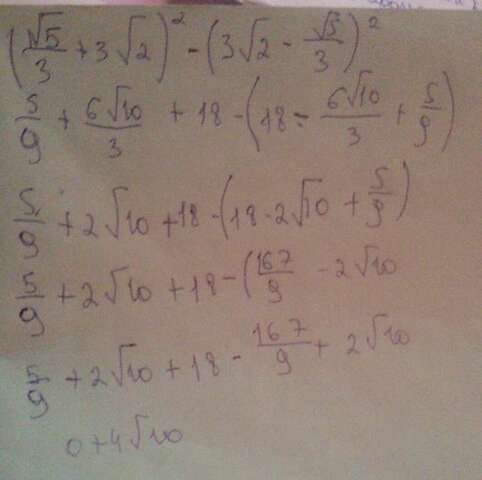 (√5/3 + 3√2)² - (3√2 - √5/3)²
5/9 + 6√10/3 + 18 - (18 - 6√10/3 + 5/9)
5/9 + 2√10 + 18 - (18 - 2√10 + 5/9)
5/9 + 2√10 + 18 - (167/9 - 2√10
5/9 + 2√10 + 18 - 167/9 + 2√10
0 + 4√10